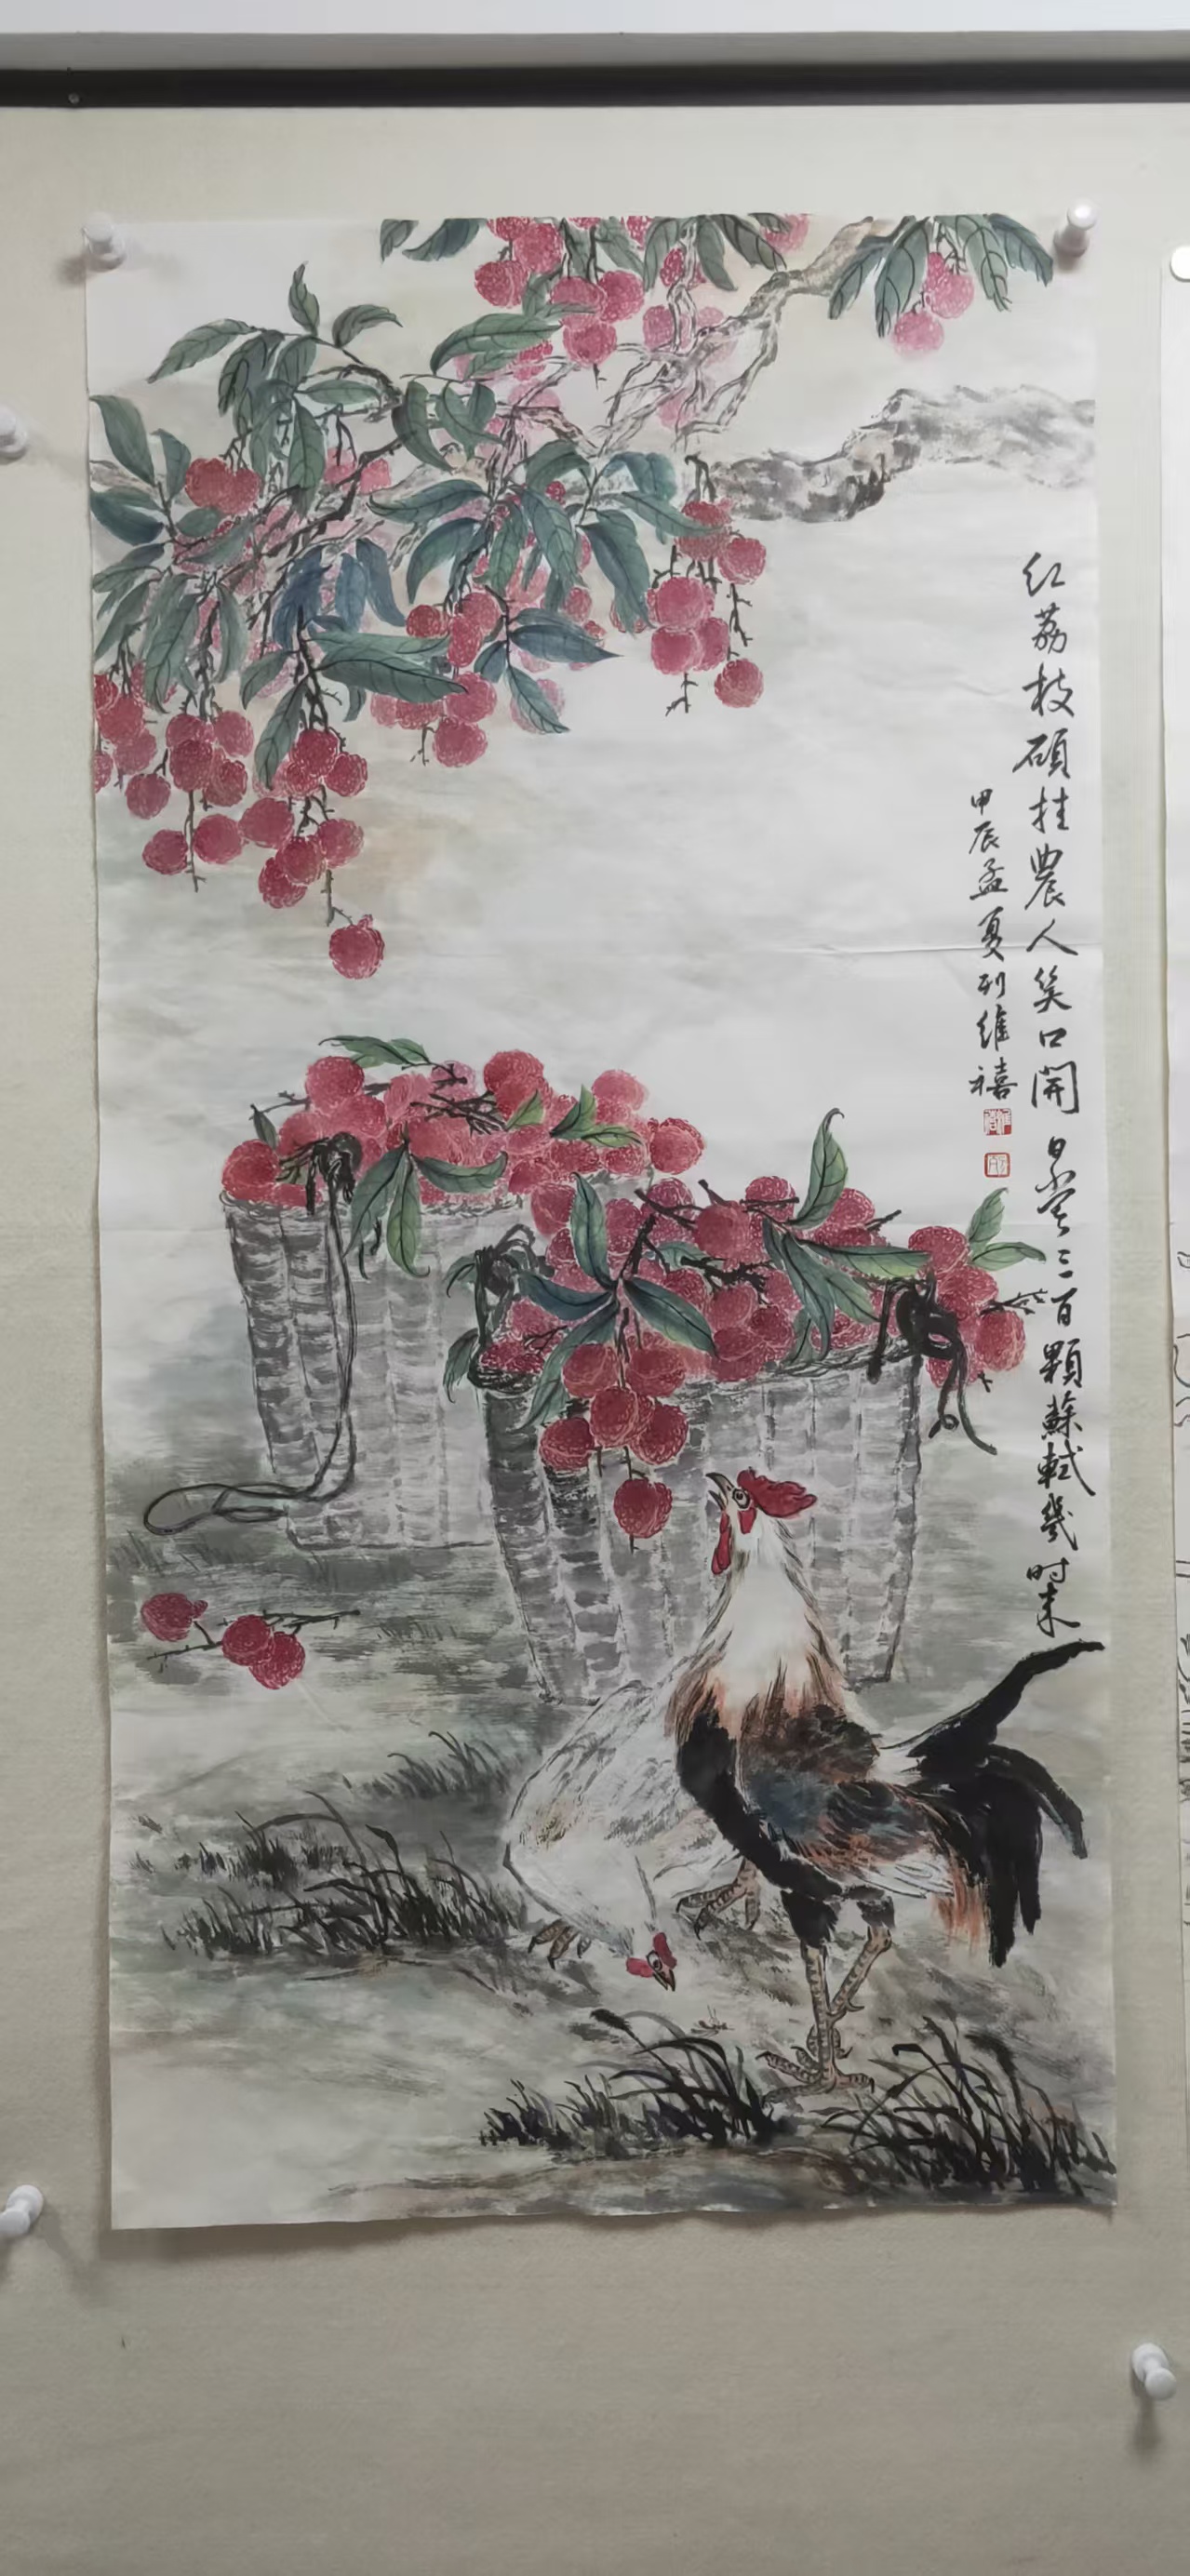 红荔枝碩挂農人笑口開 日啖三百顆蘇軾幾时来
甲辰孟夏刘維禧